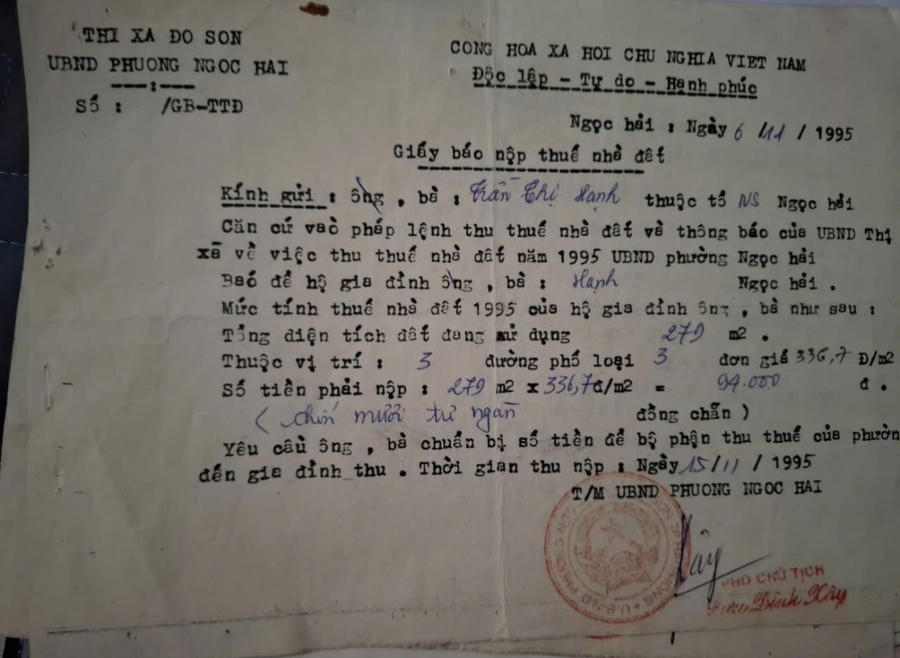 THI XA ĐO SON
UBND PHUONG NGOC HAI
Số : /GB-TTĐ
CONG HOA XA HOI CHU NGHIA VIET NAM
Độc lập - Tự do - Hạnh phúc
Ngọc hải : Ngày 6 /11 / 1995
Giấy báo nộp thuế nhà đất
Kính gửi : ông , bà : Trần Thị Hạnh thuộc tổ NS Ngọc hải
Căn cứ vào pháp lệnh thu thuế nhà đất và thông báo của UBND Thị
xã về việc thu thuế nhà đất năm 1995 UBND phường Ngọc hải
Baó để hộ gia đình ông , bà : Hạnh Ngọc hải .
Mức tính thuế nhà đất 1995 của hộ gia đình ông , bà như sau :
Tổng diện tích đất đang sử dụng 279 m2 .
Thuộc vị trí : 3 đường phố loại 3 đơn giá 336,7 Đ/m2
Số tiền phải nộp : 279 m2 x 336,7đ/m2 = 94.000 đ .
( chín mươi tư ngàn đồng chẵn )
Yêu cầu ông , bà chuẩn bị số tiền để bộ phận thu thuế của phườn
đến gia đình thu . Thời gian thu nộp : Ngày 15/11 / 1995
T/M UBND PHUONG NGOC HAI
PHO CHỦ TỊCH
Đình Xây